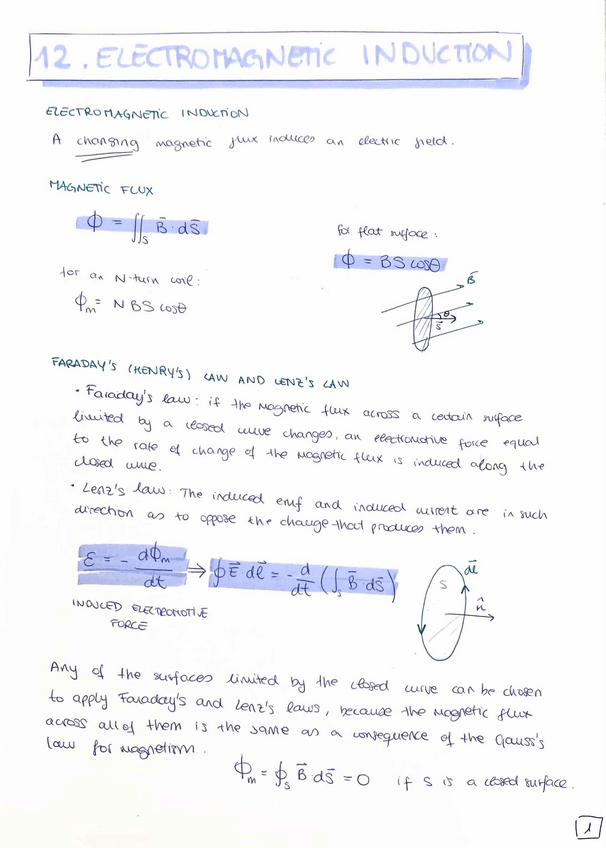 12. ELECTROMAGNETIC INDUCTION
ELECTROMAGNETIC INDUCTION
A changing magnetic flux induces an electric field.
MAGNETIC FLUX
ϕ = ∬_S B̄ · dS̄
for flat surface:
ϕ = BS cosθ
for an N-turn coil:
ϕ_m = N B S cosθ
B̄
θ
S̄
FARADAY'S (HENRY'S) LAW AND LENZ'S LAW
• Faraday's law: if the magnetic flux across a certain surface
limited by a closed curve changes, an electromotive force equal
to the rate of change of the magnetic flux is induced along the
closed curve.
• Lenz's law: The induced emf and induced current are in such
direction as to oppose the change that produces them.
ε = - dϕ_m/dt ⇒ ∮ E⃗ dl⃗ = - d/dt (∫_S B̄ · dS̄)
INDUCED ELECTROMOTIVE
FORCE
S
dl⃗
n̂
Any of the surfaces limited by the closed curve can be chosen
to apply Faraday's and Lenz's laws, because the magnetic flux
across all of them is the same as a consequence of the Gauss's
law for magnetism.
ϕ_m = ∮_S B⃗ · dS̄ = 0 if S is a closed surface.
1